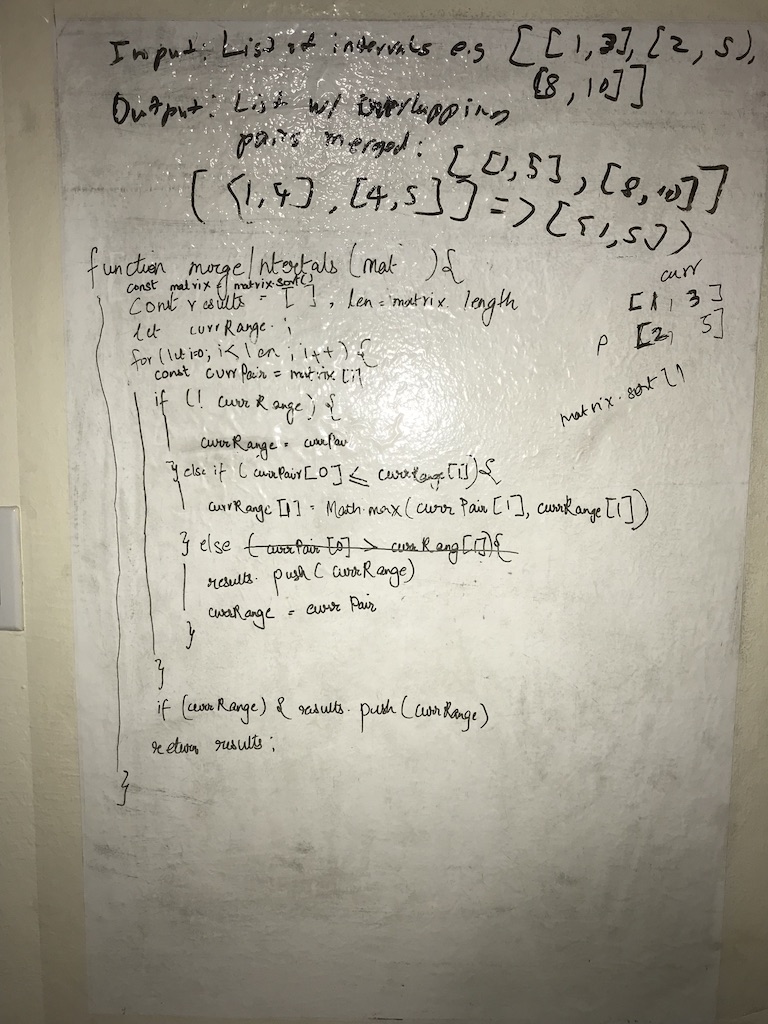 Input: List of intervals e.g [[1,3],[2,5],
[8,10]]
Output: List w/ overlapping
pairs merged:
[[1,5],[8,10]]
[[1,4],[4,5]] => [[1,5])
function mergeIntertals (mat ){
const matrix = matrix.sort()
const results = [ ], len = matrix.length
let currRange;
for (let i=0; i<len; i++) {
const currPair = matrix[i]
if (! currRange) {
currRange = currPair
} else if (currPair[0] ≤ currRange[1]){
currRange[1] = Math.max(currPair[1], currRange[1])
} else (currPair[0] > currRang[1]){
results.push(currRange)
currRange = currPair
}
}
if (currRange) { results.push(currRange)
return results;
}
curr
[1, 3]
p [2, 5]
matrix.sort()